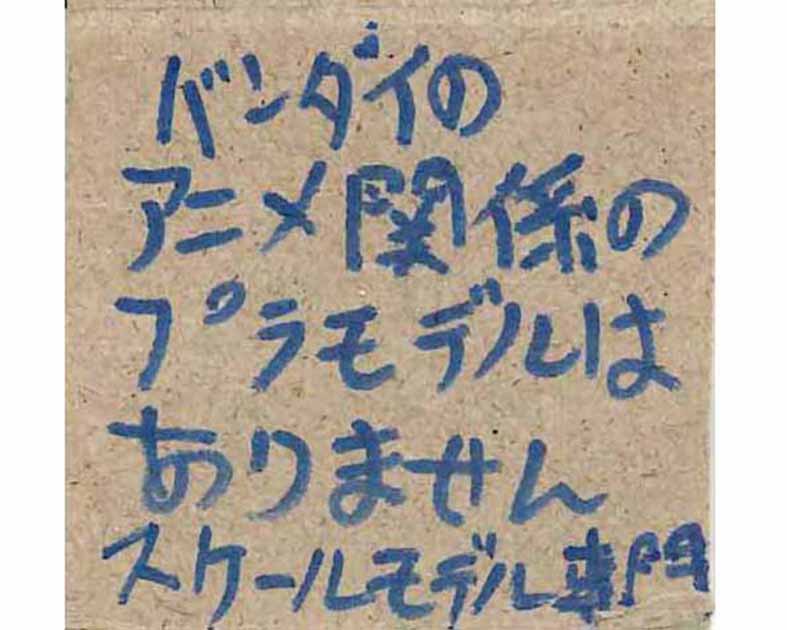 バンダイの
アニメ関係の
プラモデルは
ありません
スケールモデル専門